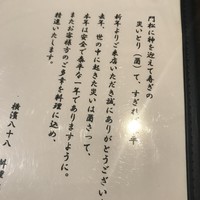 門松に神を迎えて寿ぎの
災いとり（酉）て、すぎれ
新年よりご来店いただき誠にありがとうござい
去年、世の中に起きた災いは酉さって、
本年は安全で泰平な一年でありますように。
またお客様方のご多幸を料理に込め、
精進いたします。
横濱八十八